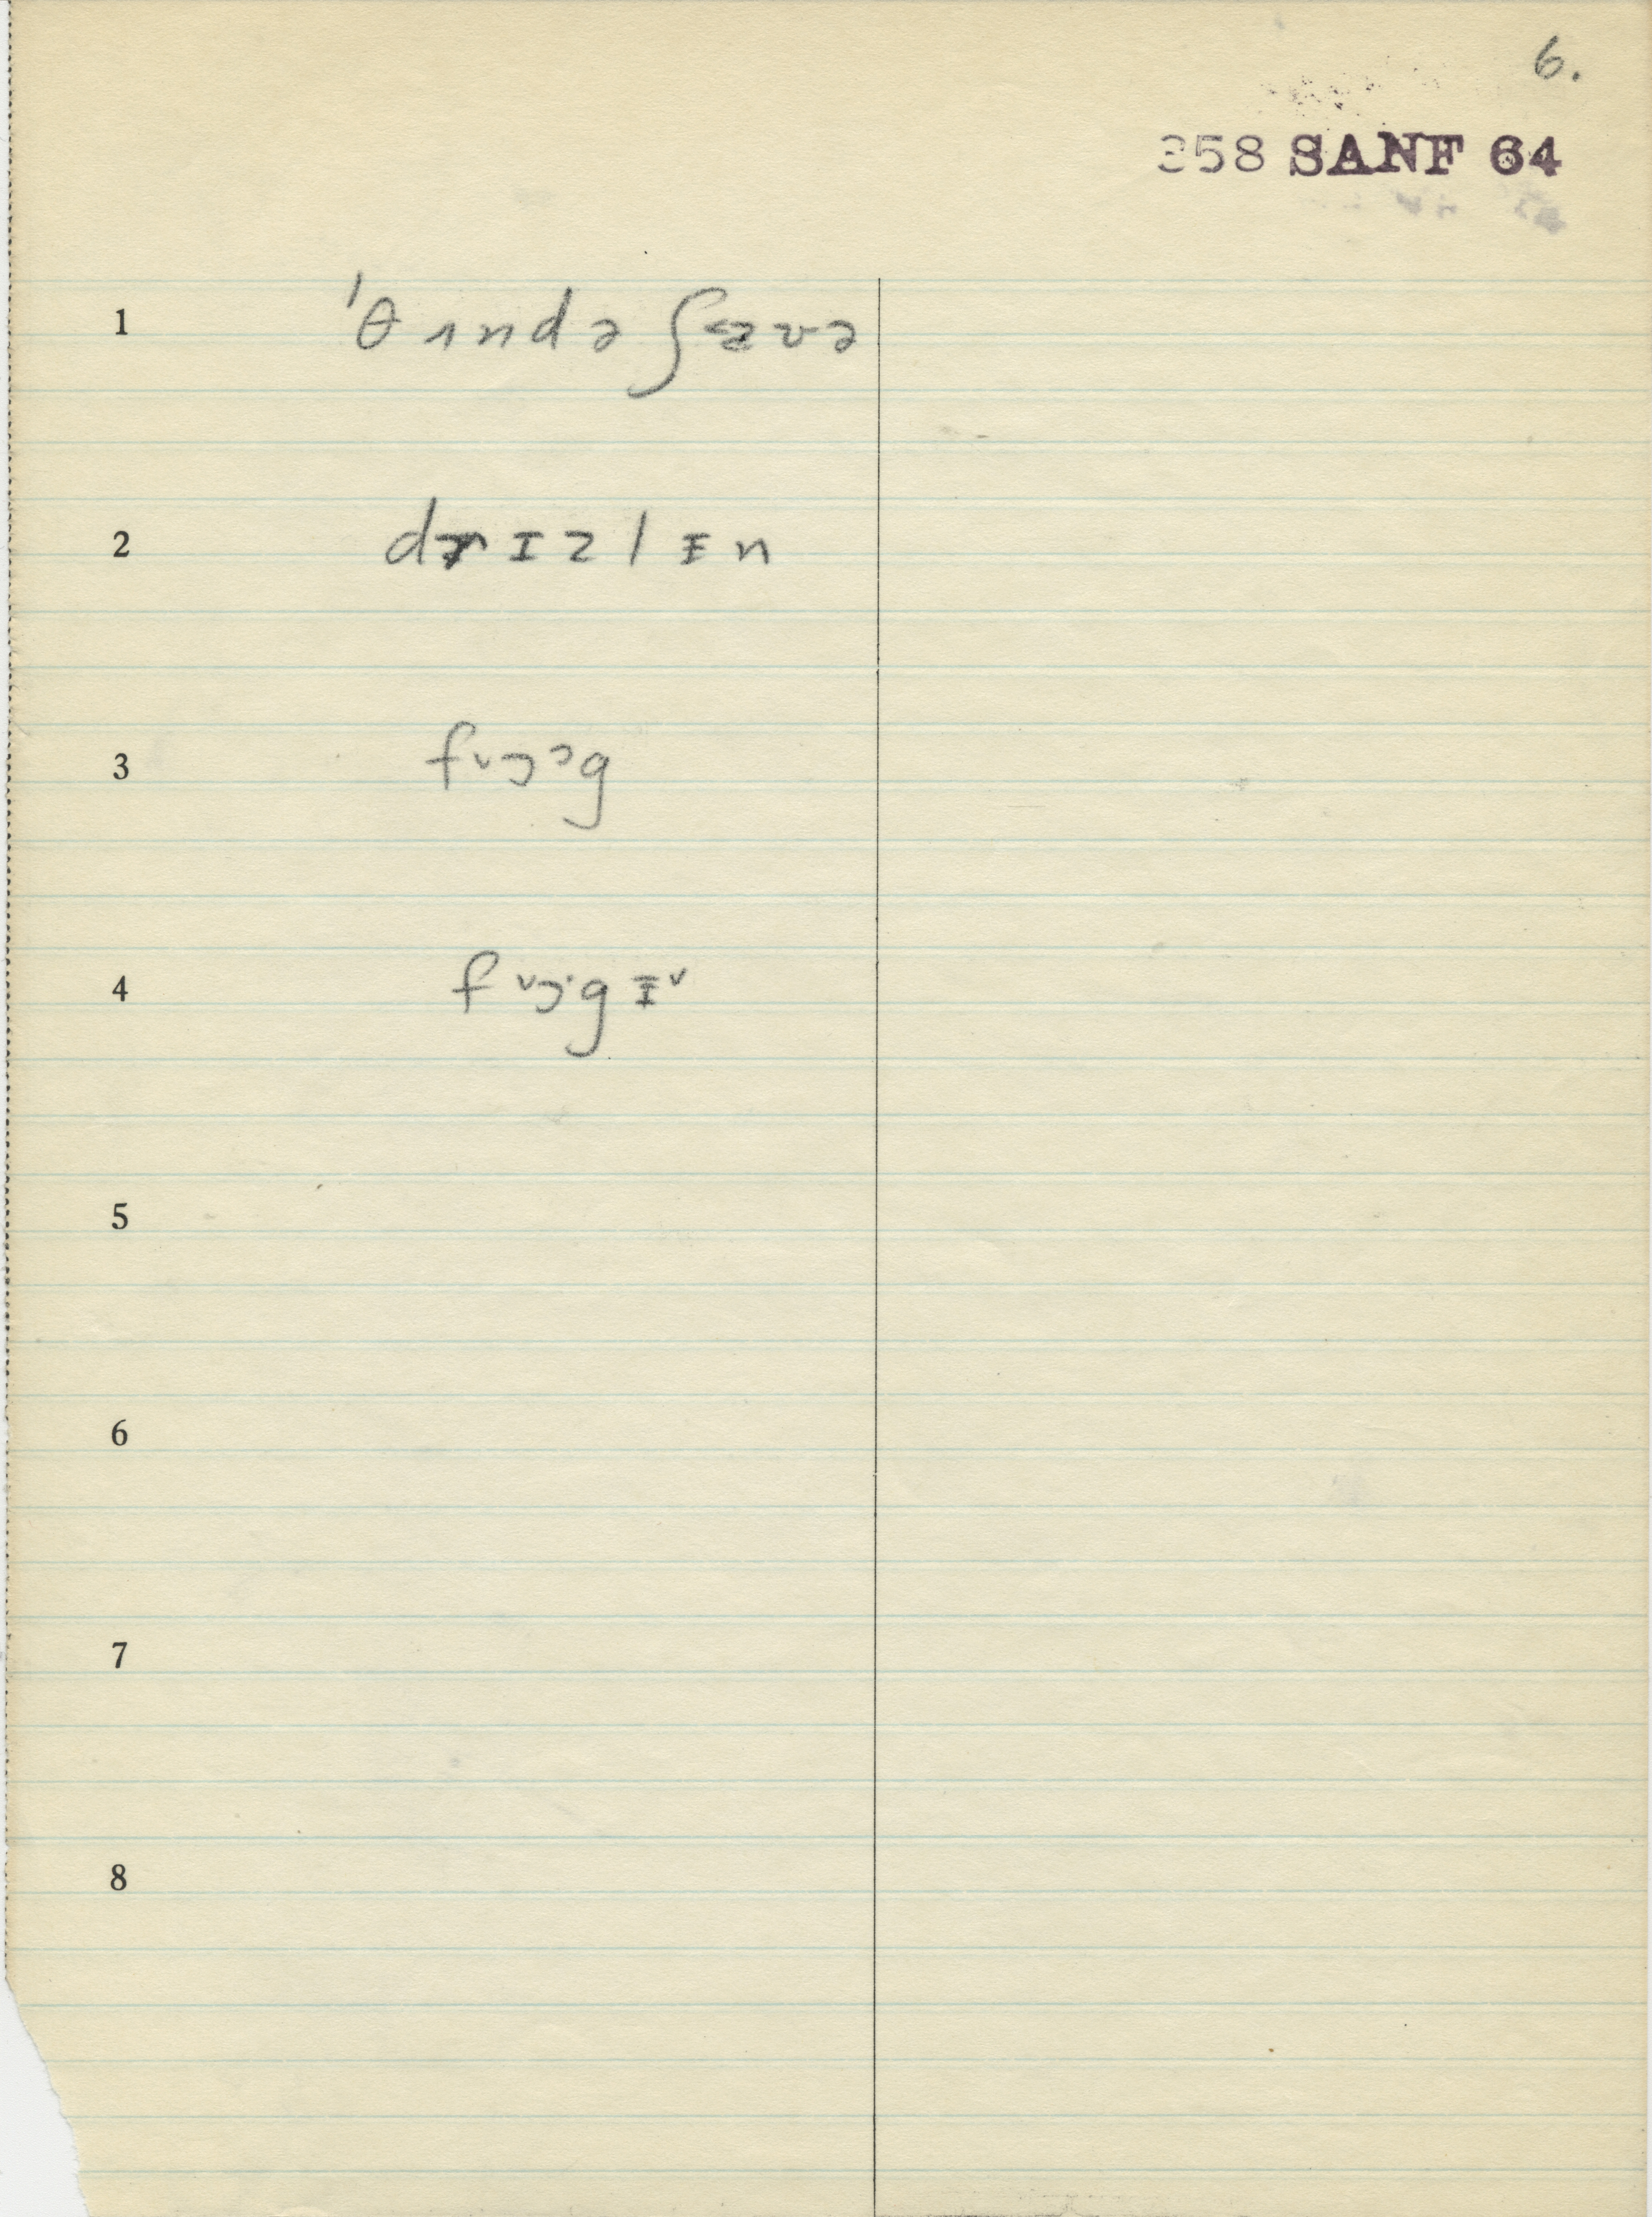 6.
358 SANF 64
1 ˈθʌndəʃaʊvə
2 drɪzlɪn
3 fᵛɔᵓg
4 fᵛɔ·gɪᵛ
5
6
7
8